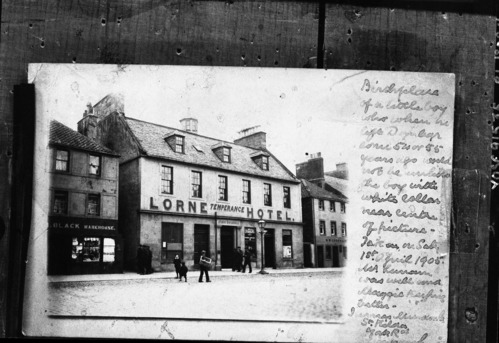 LORNE TEMPERANCE HOTEL.
BLACK WAREHOUSE.
Birthplace
of a little boy
who when he
left Dunbar
50 or 55
years ago would
not be unlike
the boy with
white collar
near centre
of picture -
Taken on Sat,
1st April 1905
was well and
Maggie
St Kilda